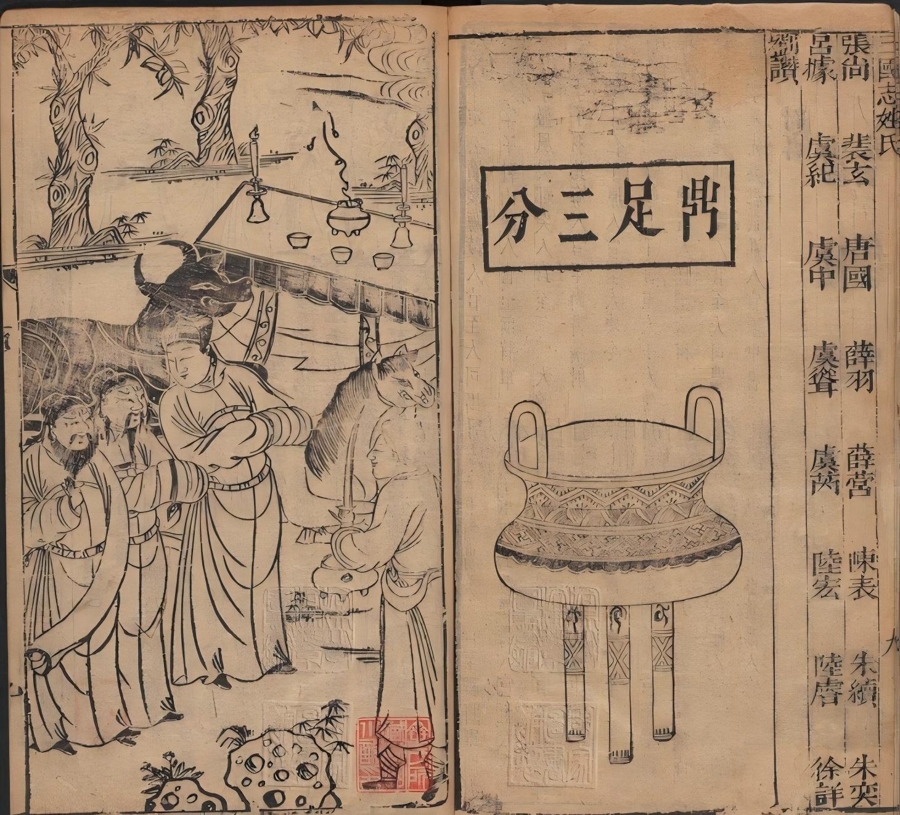 三國志姓氏
九
張尚 裴玄 唐國 薛羽 薛營 陳表 朱續 朱奕
呂據 虞紀 虞中 虞聳 虞 陸宏 陸 徐詳
劉讚
鼎足三分